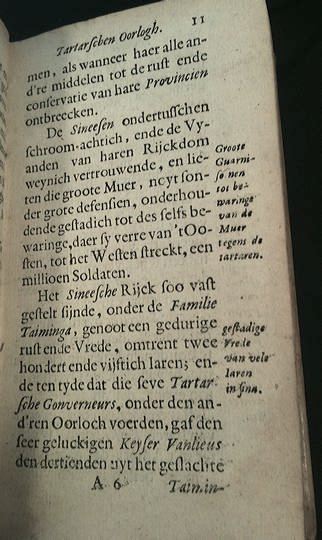 Tartarschen Oorlogh. 11
men, als wanneer haer alle an-
d're middelen tot de rust ende
conservatie van hare Provincien
ontbreecken.
De Sineesen ondertusschen
schroom-achtich, ende de Vy-
anden van haren Rijckdom
weynich vertrouwende, en lie-
ten die groote Muer, noyt son-
der grote defensien, onderhou-
dende gestadich tot des selfs be-
waringe, daer sy verre van 't Oo-
sten, tot het Westen streckt, een
millioen Soldaten.
Groote
Guarni-
so nen
tot be-
waringe
van de
Muer
tegens de
tartaren.
Het Sineesche Rijck soo vast
gestelt sijnde, onder de Familie
Taiminga, genoot een gedurige
rust ende Vrede, omtrent twee
hondert ende vijftich Iaren; en-
de ten tyde dat die seve Tartar
sche Gonverneurs, onder den an-
d'ren Oorloch voerden, gaf den
seer geluckigen Keyser Vanlieus
den dertienden uyt het geslachte
gestadige
Vrede
van vele
Iaren
in sina.
A 6 Taimin-